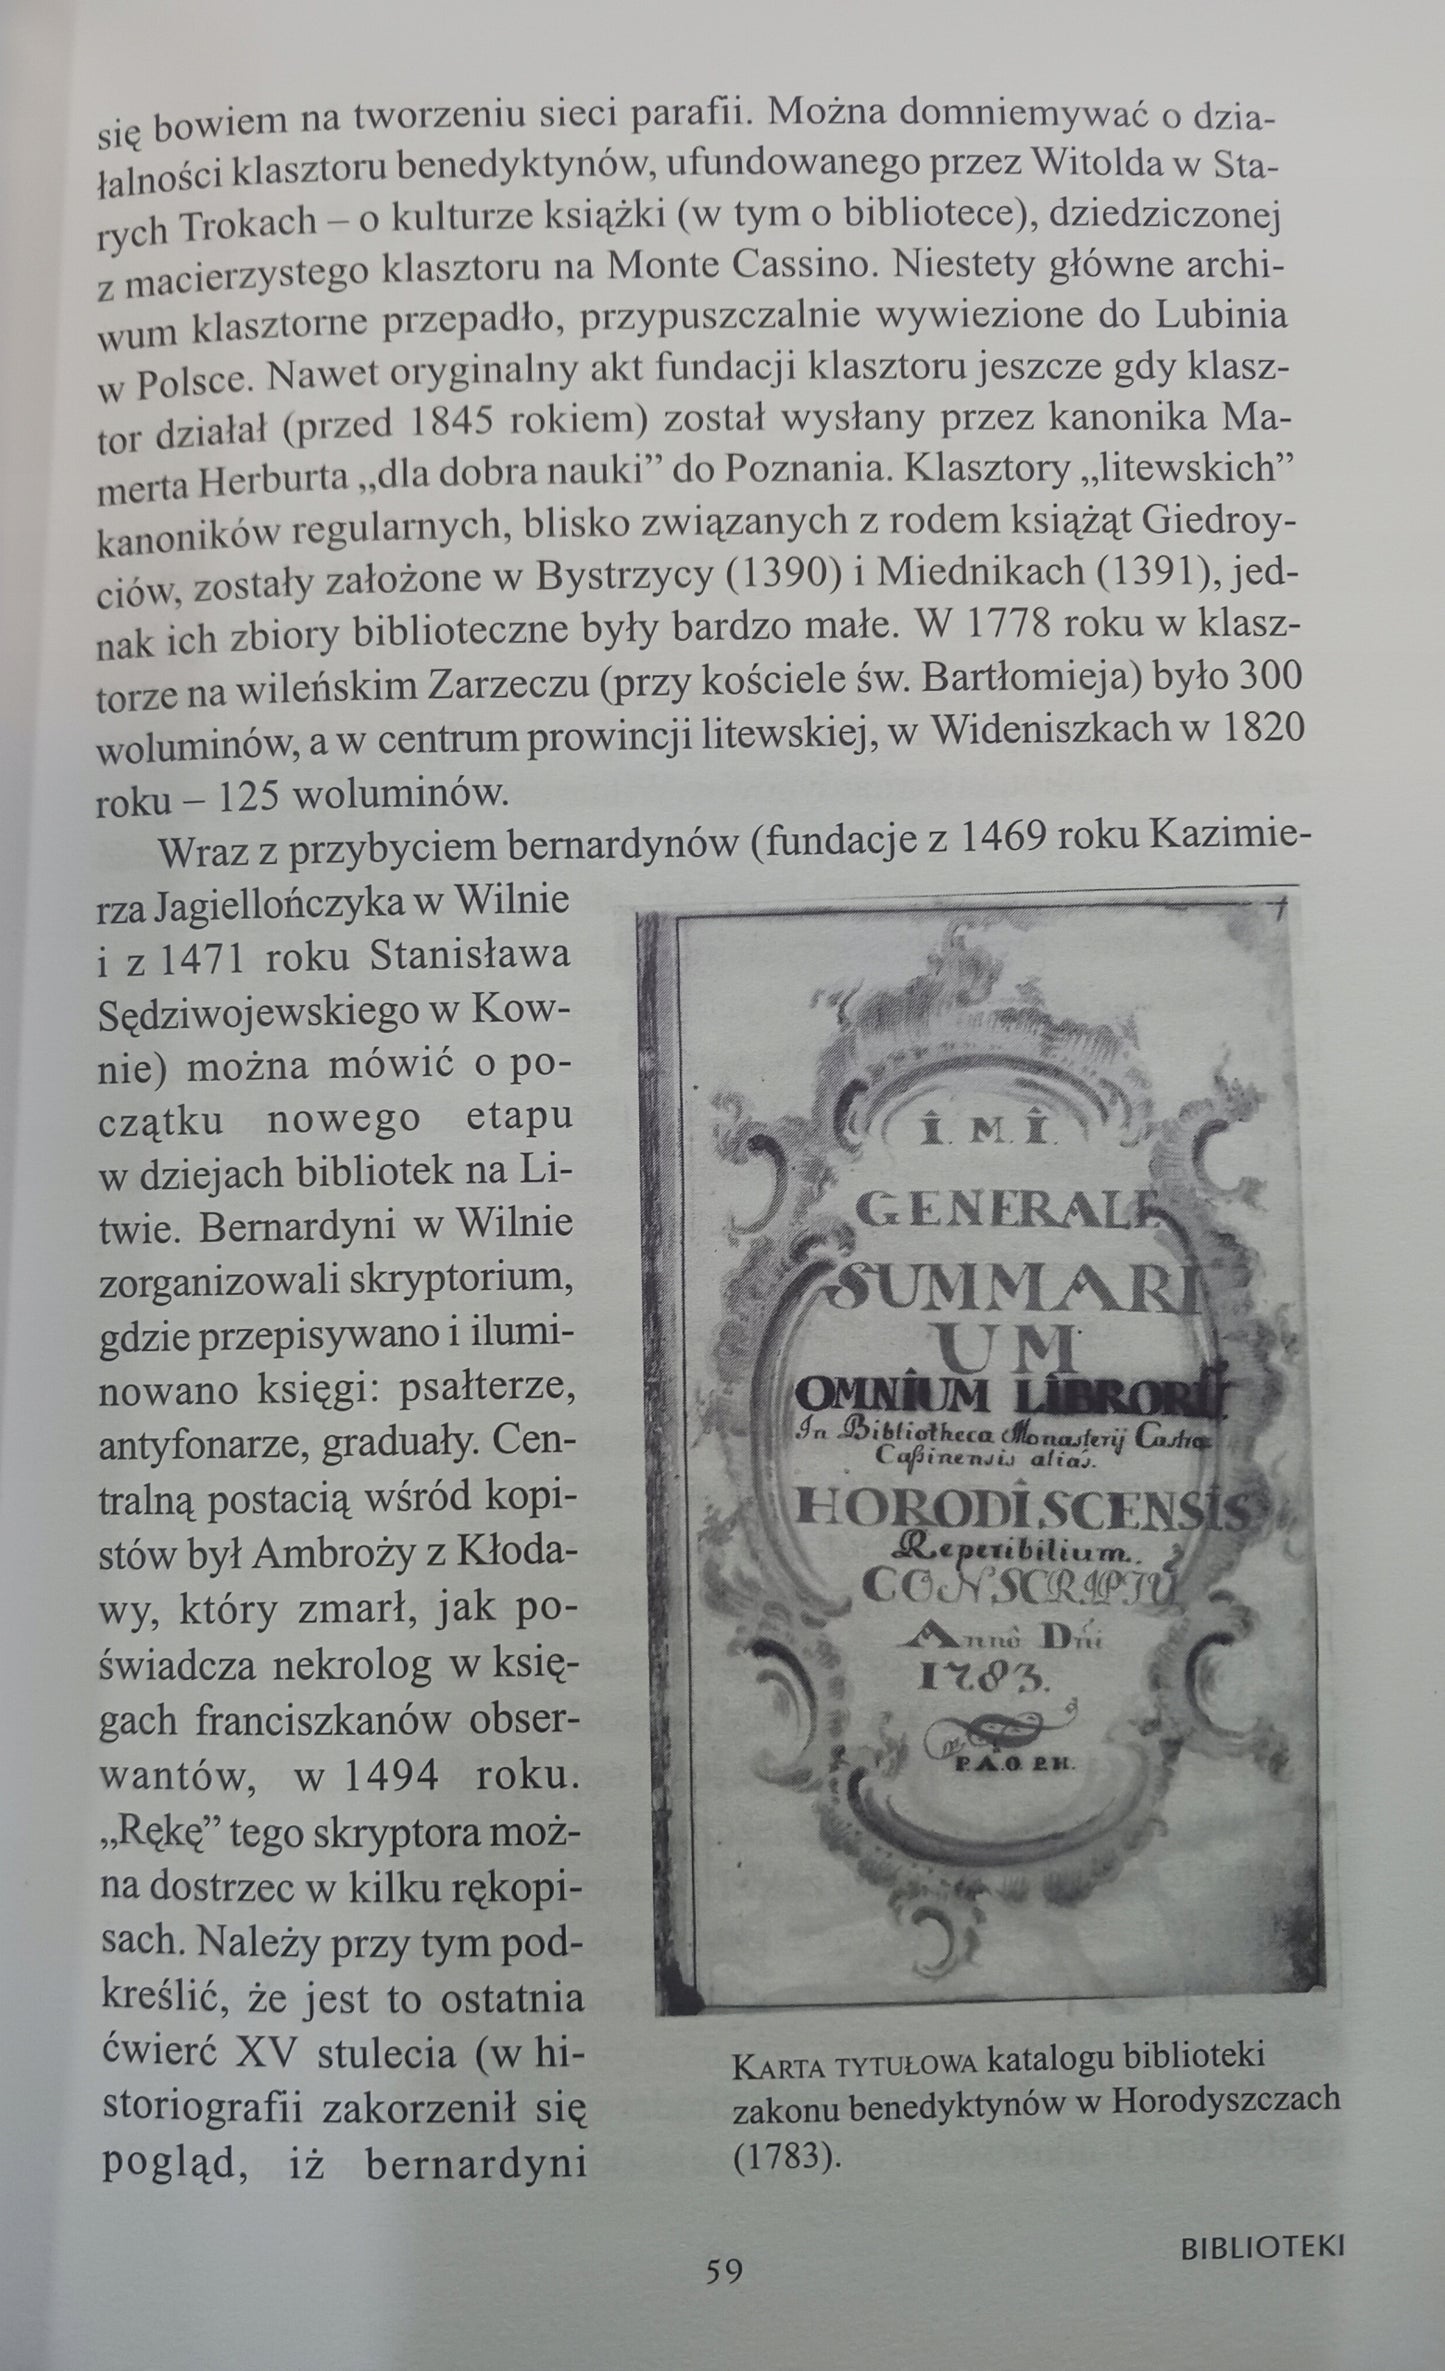 się bowiem na tworzeniu sieci parafii. Można domniemywać o dzia-
łalności klasztoru benedyktynów, ufundowanego przez Witolda w Sta-
rych Trokach – o kulturze książki (w tym o bibliotece), dziedziczonej
z macierzystego klasztoru na Monte Cassino. Niestety główne archi-
wum klasztorne przepadło, przypuszczalnie wywiezione do Lubinia
w Polsce. Nawet oryginalny akt fundacji klasztoru jeszcze gdy klasz-
tor działał (przed 1845 rokiem) został wysłany przez kanonika Ma-
merta Herburta „dla dobra nauki” do Poznania. Klasztory „litewskich”
kanoników regularnych, blisko związanych z rodem książąt Giedroy-
ciów, zostały założone w Bystrzycy (1390) i Miednikach (1391), jed-
nak ich zbiory biblioteczne były bardzo małe. W 1778 roku w klasz-
torze na wileńskim Zarzeczu (przy kościele św. Bartłomieja) było 300
woluminów, a w centrum prowincji litewskiej, w Wideniszkach w 1820
roku – 125 woluminów.
Wraz z przybyciem bernardynów (fundacje z 1469 roku Kazimie-
rza Jagiellończyka w Wilnie
i z 1471 roku Stanisława
Sędziwojewskiego w Kow-
nie) można mówić o po-
czątku nowego etapu
w dziejach bibliotek na Li-
twie. Bernardyni w Wilnie
zorganizowali skryptorium,
gdzie przepisywano i ilumi-
nowano księgi: psałterze,
antyfonarze, graduały. Cen-
tralną postacią wśród kopi-
stów był Ambroży z Kłoda-
wy, który zmarł, jak po-
świadcza nekrolog w księ-
gach franciszkanów obser-
wantów, w 1494 roku.
„Rękę” tego skryptora moż-
na dostrzec w kilku rękopi-
sach. Należy przy tym pod-
kreślić, że jest to ostatnia
ćwierć XV stulecia (w hi-
storiografii zakorzenił się
pogląd, iż bernardyni
Î. M. Î.
GENERALE
SUMMARI
UM
OMNÎUM LÎBRORŪ
In Bibliotheca Monasterij Castro
Caßinensis alias.
HORODÎSCENSÎS
Reperibilium.
CONSCRIPTŪ
Annô Dńi
1783.
P.A.O. P.H.
KARTA TYTUŁOWA katalogu biblioteki
zakonu benedyktynów w Horodyszczach
(1783).
59
BIBLIOTEKI